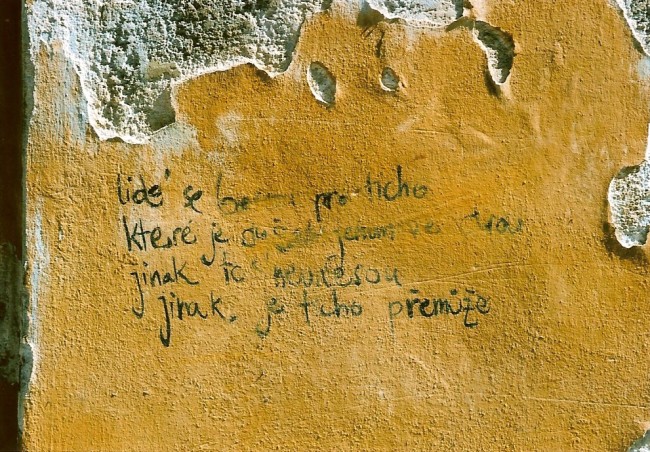 lidé se pro ticho
které je jenom ve
jinak to neunesou
jinak je ticho přemůže